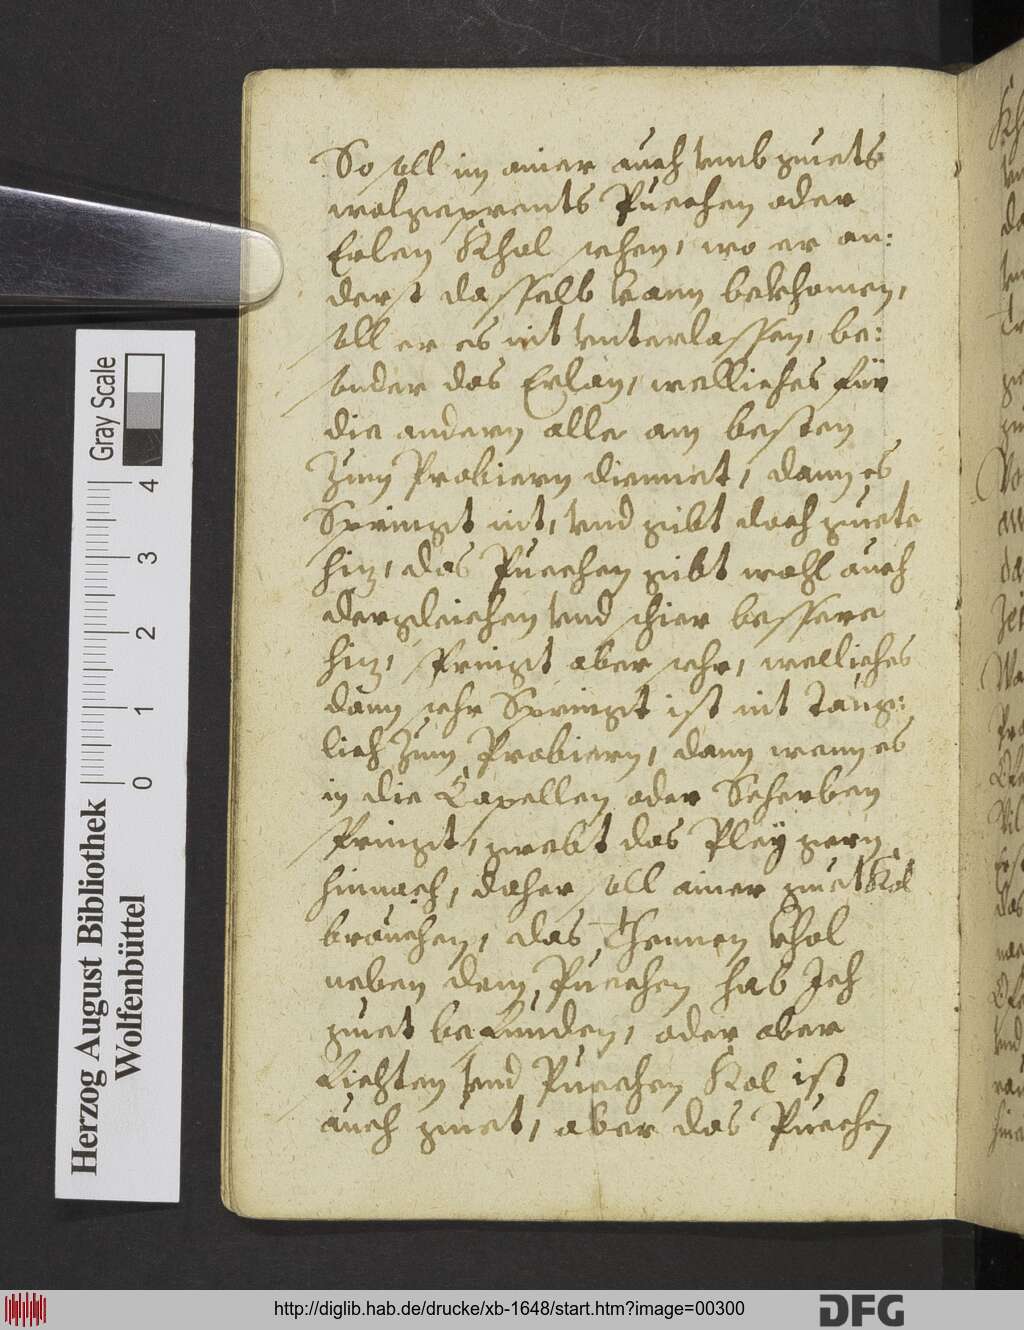 So soll im ainer auch vmb guets
wolgeprents Puechen oder
Erlen Khol sehen, wo er an:
derst dasselb kann bekhomen,
soll er es nit vnterlassen, be:
sonder das Erlan, welliches für
die andern alle am besten
Zum Probiern diennet, dann es
Springt nit, vnd gibt doch guete
hitz, das Puechen gibt wohl auch
dergleichen vnd schier bessere
hitz, springt aber sehr, welliches
dann sehr Springt ist nit Taug:
lich Zum Probiern, dann wenn es
in die Capellen oder Scherben
springt, grebt das Pley gern
hinnach, daher soll ainer guet Kol
brauchen, das Thennen khol
neben dem Puechen hab Ich
guet befunden, oder aber
Liechten vnd Puechen Kol ist
auch guet, aber das Puechen
Gray Scale
0 1 2 3 4
Herzog August Bibliothek
Wolfenbüttel
http://diglib.hab.de/drucke/xb-1648/start.htm?image=00300
DFG